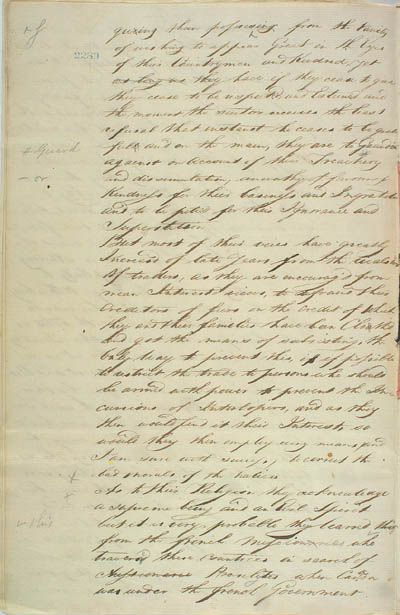 quiring than possessing, from the Vanity
of wishing to appear great in the Eyes
of their Countrymen and Kindred, yet
as long as they have if they cease to give
they cease to be respected and listened and
the moment the receives the least
refusal that instant he ceases to be grate
full and on the many they are to Guard
against on Account of their Treachery
and dissimulation, unworthy of favours &
Kindness for their baseness and Ingratitude
and to be pitied for their Ignorance and
Superstition
But most of their vices have greatly
Increased of late years from the
of traders, as they are encouraged from
mean Interest views, to defraud their
Creditors of furs on the credit of which
they and their families have been Cloathed
and got the means of subsisting, the
only way to prevent this, is if possible
to restrict the trade to persons who should
be armed with power to prevent the In
cursions of Interlopers, and as they
then would find it their Interest, so
would they then employ every means, and
I am sure with success, to correct the
bad morals of the Natives
As to their Religion they acknowledge
a supreme being and an Evil Spirit
but it is very probable they learned this
from the french Missionaries who
traversed these Countries in search of
Proselites, when Canada
was under the french Government
+ Guard
- or
2259